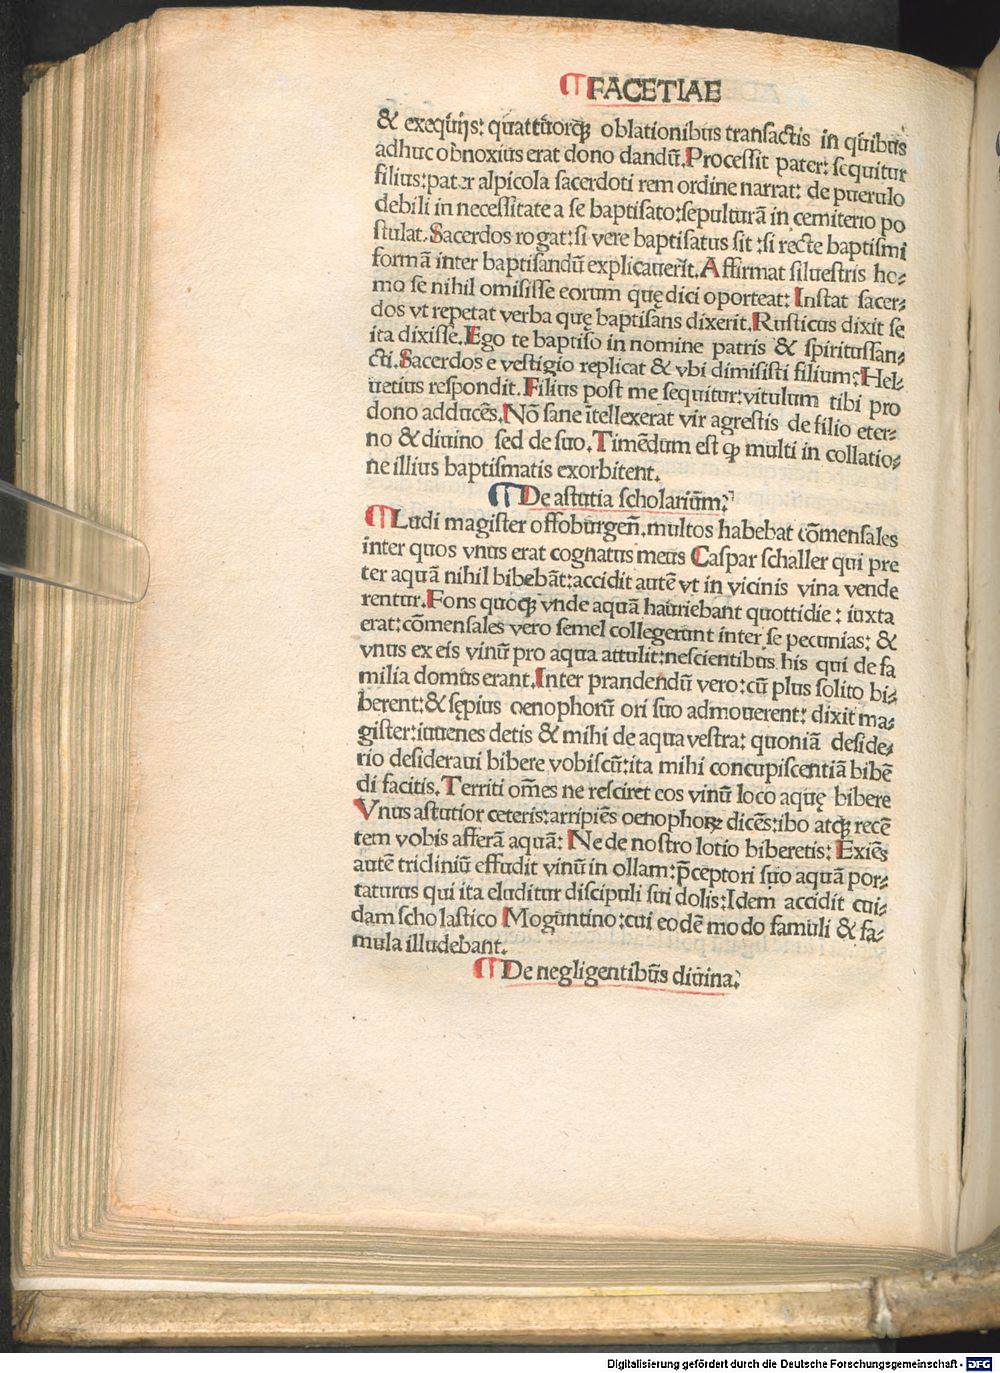 ¶FACETIAE
& exequijs: quattuorq; oblationibus transactis in quibus
adhuc obnoxius erat dono dandū. Processit pater: sequitur
filius: pater alpicola sacerdoti rem ordine narrat: de puerulo
debili in necessitate a se baptisato: sepulturā in cemiterio po
stulat. Sacerdos rogat: si vere baptisatus sit: si recte baptismi
formā inter baptisandū explicauerit. Affirmat siluestris ho-
mo se nihil omisisse eorum quę dici oporteat: Instat sacer-
dos vt repetat verba quę baptisans dixerit. Rusticus dixit se
ita dixisse. Ego te baptiso in nomine patris & spiritussan-
cti. Sacerdos e vestigio replicat & vbi dimisisti filium: Hel-
uetius respondit. Filius post me sequitur: vitulum tibi pro
dono adducēs. Nō sane ītellexerat vir agrestis de filio eter-
no & diuino sed de suo. Timēdum est ꝙ multi in collatio-
ne illius baptismatis exorbitent.
¶De astutia scholarium:
¶Ludi magister offoburgeñ. multos habebat cōmensales
inter quos vnus erat cognatus meus Caspar schaller qui pre
ter aquā nihil bibebāt: accidit autē vt in vicinis vina vende
rentur. Fons quoq; vnde aquā hauriebant quottidie: iuxta
erat: cōmensales vero semel collegerunt inter se pecunias: &
vnus ex eis vinū pro aqua attulit: nescientibus his qui de fa
milia domus erant. Inter prandendū vero: cū plus solito bi-
berent: & sępius oenophorū ori suo admouerent: dixit ma-
gister: iuuenes detis & mihi de aqua vestra: quoniā deside-
rio desideraui bibere vobiscū: ita mihi concupiscentiā bibē
di facitis. Territi om̄es ne resciret eos vinū loco aquę bibere
Vnus astutior ceteris: arripiēs oenophoꝝ dicēs: ibo atq; recē
tem vobis afferā aquā: Ne de nostro lotio biberetis: Exiēs
autē tricliniū effudit vinū in ollam: p̄ceptori suo aquā por-
taturus qui ita eluditur discipuli sui dolis: Idem accidit cui-
dam scholastico Moguntino: cui eodē modo famuli & fa-
mula illudebant.
¶De negligentibus diuina:
Digitalisierung gefördert durch die Deutsche Forschungsgemeinschaft - DFG